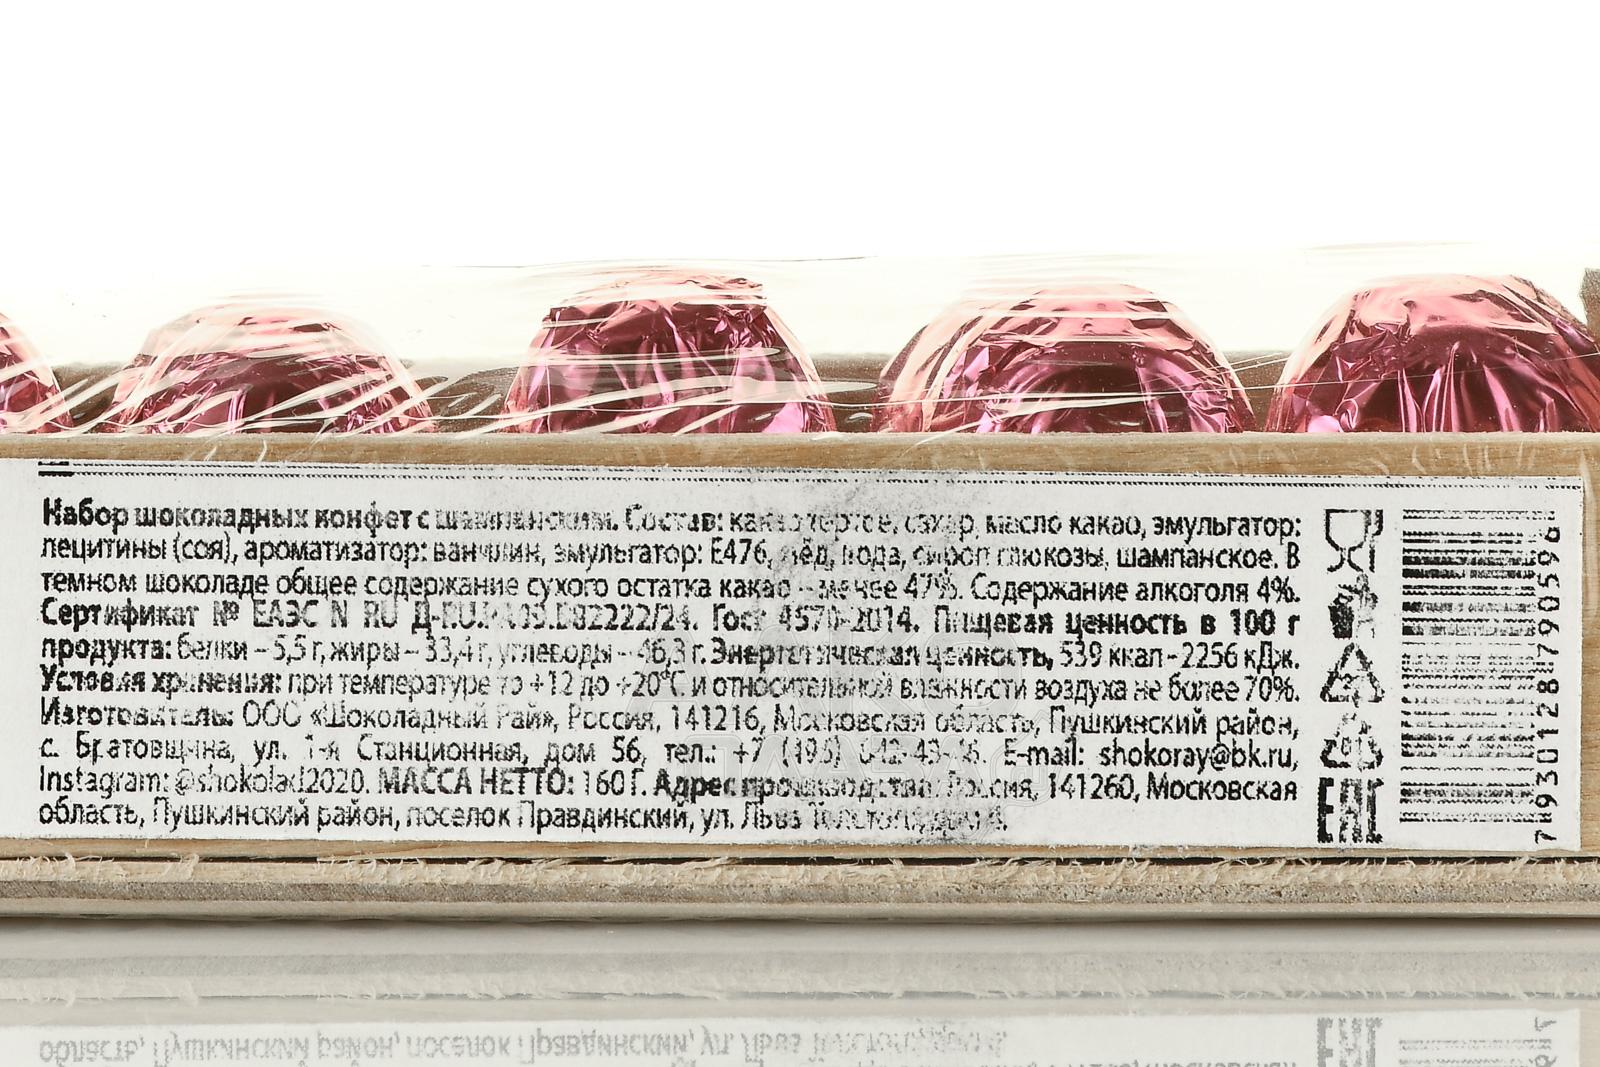 Набор шоколадных конфет с шампанским. Состав: какао тертое, сахар, масло какао, эмульгатор:
лецитины (соя), ароматизатор: ванилин, эмульгатор: Е476, мёд, вода, сироп глюкозы, шампанское. В
темном шоколаде общее содержание сухого остатка какао - менее 47%. Содержание алкоголя 4%.
Сертификат № ЕАЭС N RU Гост 4570-2014. Пищевая ценность в 100 г
продукта: белки – 5,5 г, жиры – 33,4 г, углеводы – 46,3 г. Энергетическая ценность, 539 ккал - 2256 кДж.
Условия хранения: при температуре то +12 до +20°С и относительной влажности воздуха не более 70%.
Изготовитель: ООО «Шоколадный Рай», Россия, 141216, Московская область, Пушкинский район,
с. Братовщина, ул. 1-я Станционная, дом 56, тел.: +7 E-mail: shokoray@bk.ru,
Instagram: @shokolad2020. МАССА НЕТТО: 160 Г. Адрес производства: Россия, 141260, Московская
область, Пушкинский район, поселок Правдинский, ул. Льва Толстого,
ЕАС
7930128790596